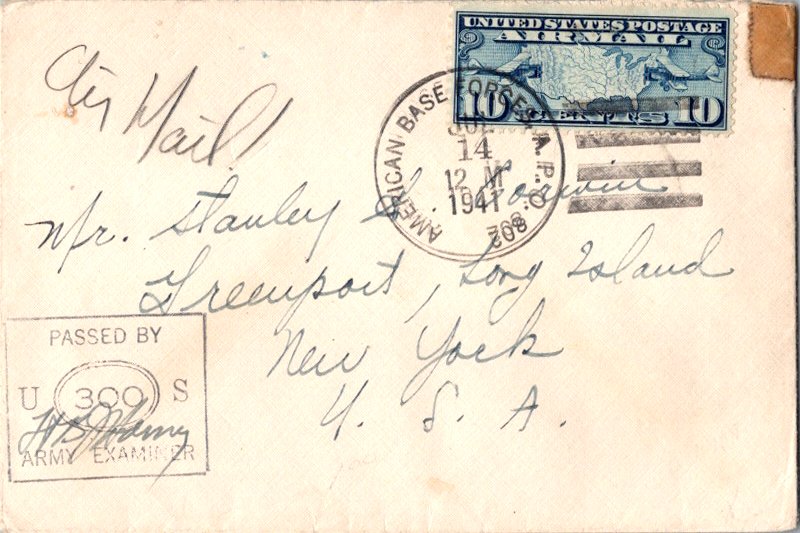 Air Mail
UNITED STATES POSTAGE
AIR MAIL
10 CENTS 10
AMERICAN BASE FORCES A.P.O. 802
JUL
14
12 M
1941
Mr. Stanley S. Corwin
Greenport, Long Island
New York
U. S. A.
PASSED BY
U 300 S
ARMY EXAMINER